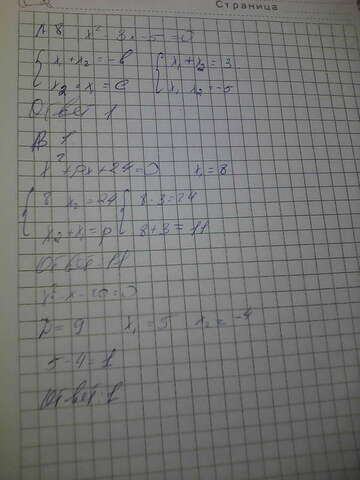 Страница
А 8 x² 3x - 5 = 0
x + x₂ = -b x₁ + x₂ = 3
x₂ · x = c x₁ x₂ = -5
Ответ 1
В 1
x² + px + 24 = 0 x₁ = 8
8 x₂ = 24 8 · 3 = 24
x₂ + x₁ = p 8 + 3 = 11
Ответ 11
x² - x - 20 = 0
D = 9 x₁ = 5 x₂ = -4
5 - 4 = 1
Ответ 1